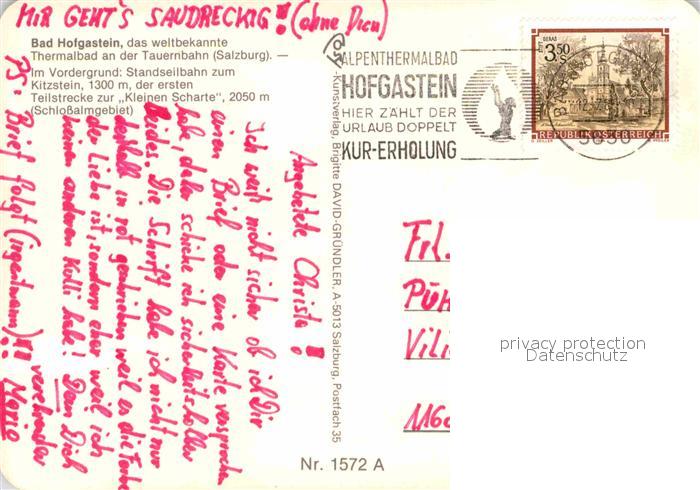 MIR GEHT'S SAUDRECKIG! (ohne Dich)
Bad Hofgastein, das weltbekannte
Thermalbad an der Tauernbahn (Salzburg). —
Im Vordergrund: Standseilbahn zum
Kitzstein, 1300 m, der ersten
Teilstrecke zur „Kleinen Scharte", 2050 m
(Schloßalmgebiet)
Angebetete Christa!
Ich weiß nicht sicher ob ich Dir
einen Brief oder eine Karte versprochen
hab, daher schicke ich sicherheitshalber
Beides. Die Schrift habe ich nicht nur
deshalb in rot geschrieben weil es die Farbe
der Liebe ist, sondern eher weil ich
keinen anderen Kulli habe! Dein Dich
verehrender
PS: Brief folgt (irgendwann)!!
-Kunstverlag, Brigitte DAVID-GRÜNDLER, A-5013 Salzburg, Postfach 35
ALPENTHERMALBAD
HOFGASTEIN
HIER ZÄHLT DER
URLAUB DOPPELT
KUR-ERHOLUNG
STIFT GERAS
3.50
S
REPUBLIK ÖSTERREICH
5630
Frl.
Vili
1160
privacy protection
Datenschutz
Nr. 1572 A